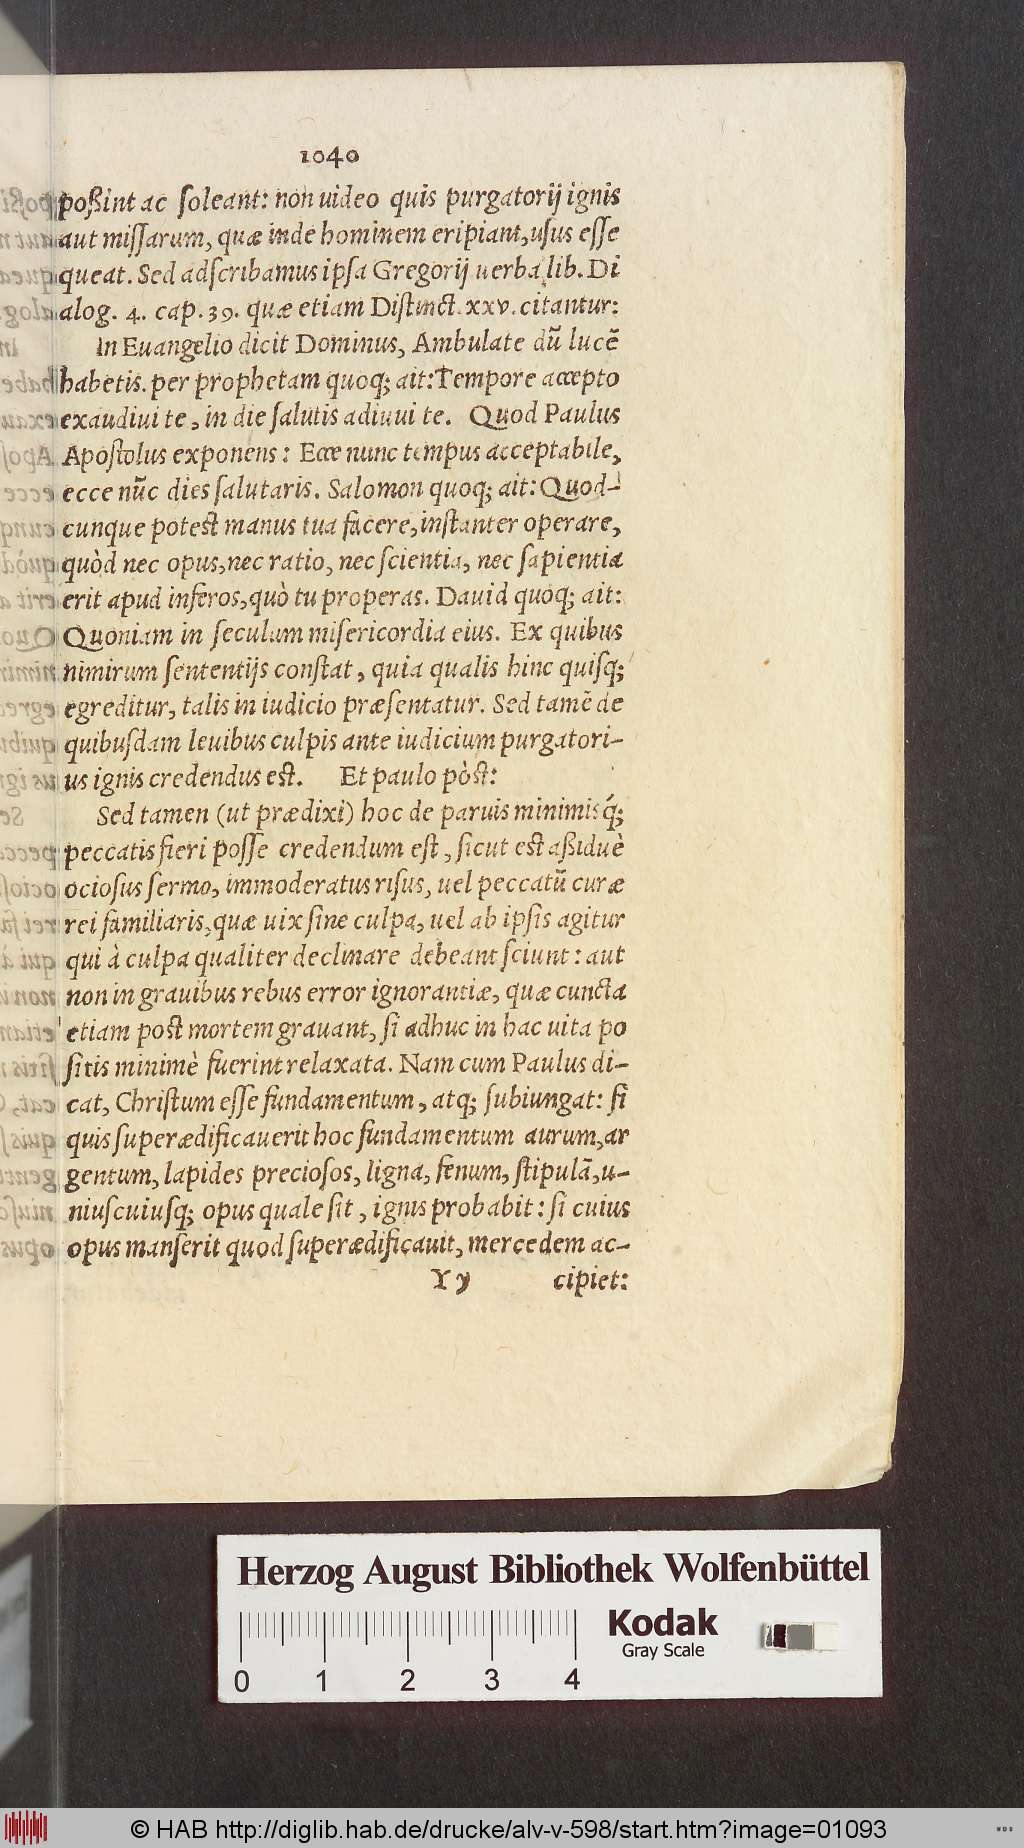 1040
poßint ac ſoleant: non uideo quis purgatorij ignis
aut miſſarum, quæ inde hominem eripiant, uſus eſſe
queat. Sed adſcribamus ipſa Gregorij uerba lib. Di
alog. 4. cap. 39. quæ etiam Diſtinct. xxv. citantur:
In Euangelio dicit Dominus, Ambulate dū lucē
habetis. per prophetam quoq; ait: Tempore accepto
exaudiui te, in die ſalutis adiuui te. Quod Paulus
Apoſtolus exponens: Ecce nunc tempus acceptabile,
ecce nūc dies ſalutaris. Salomon quoq; ait: Quod-
cunque poteſt manus tua facere, inſtanter operare,
quòd nec opus, nec ratio, nec ſcientia, nec ſapientia
erit apud inferos, quò tu properas. Dauid quoq; ait:
Quoniam in ſeculum miſericordia eius. Ex quibus
nimirum ſententijs conſtat, quia qualis hinc quiſq;
egreditur, talis in iudicio præſentatur. Sed tamē de
quibuſdam leuibus culpis ante iudicium purgatori-
us ignis credendus eſt. Et paulo pòſt:
Sed tamen (ut prædixi) hoc de paruis minimisq́;
peccatis fieri poſſe credendum eſt, ſicut eſt aßiduè
ocioſus ſermo, immoderatus riſus, uel peccatū curæ
rei familiaris, quæ uix ſine culpa, uel ab ipſis agitur
qui à culpa qualiter declinare debeant ſciunt: aut
non in grauibus rebus error ignorantiæ, quæ cuncta
etiam poſt mortem grauant, ſi adhuc in hac uita po
ſitis minimè fuerint relaxata. Nam cum Paulus di-
cat, Chriſtum eſſe fundamentum, atq; ſubiungat: ſi
quis ſuperædificauerit hoc fundamentum aurum, ar
gentum, lapides precioſos, ligna, fenum, ſtipulā, u-
niuſcuiuſq; opus quale ſit, ignis probabit: ſi cuius
opus manſerit quod ſuperædificauit, mercedem ac-
Yy cipiet:
Herzog August Bibliothek Wolfenbüttel
Kodak
Gray Scale
0 1 2 3 4
© HAB http://diglib.hab.de/drucke/alv-v-598/start.htm?image=01093